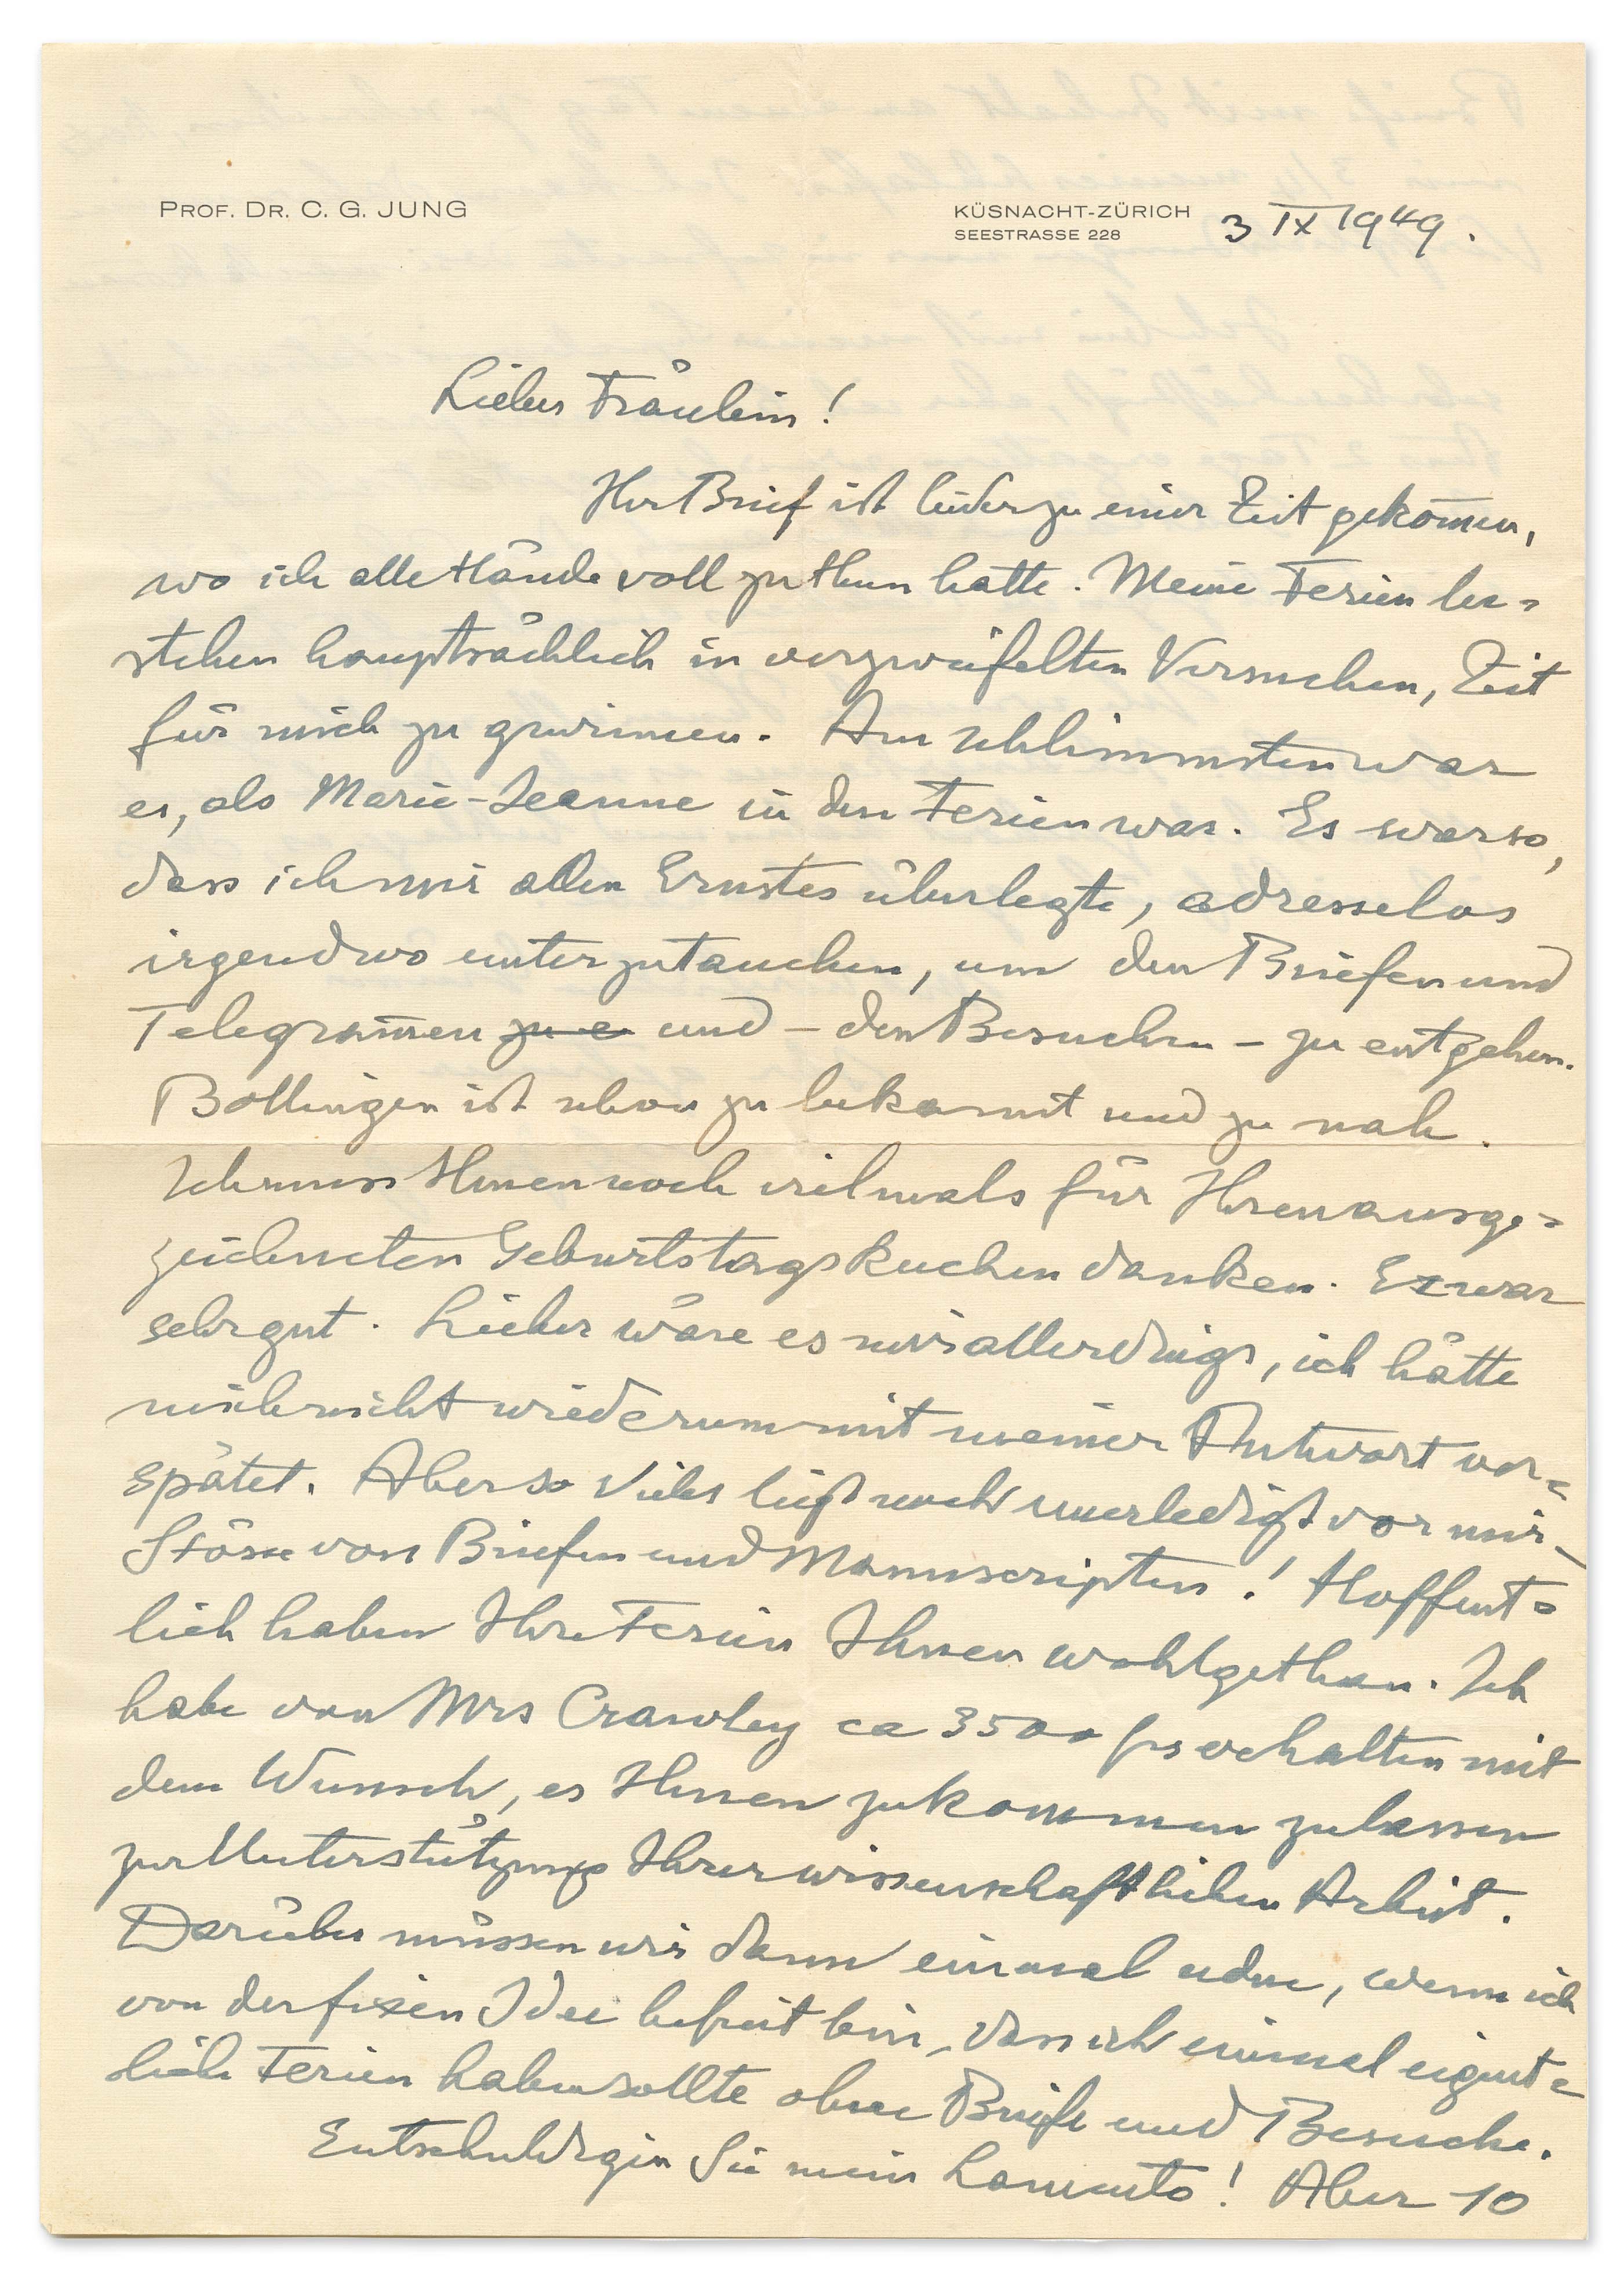 PROF. DR. C. G. JUNG
KÜSNACHT-ZÜRICH
SEESTRASSE 228
3 IX 1949.
Liebes Fräulein!
Ihr Brief ist leider zu einer Zeit gekom̄en,
wo ich alle Hände voll zu thun hatte. Meine Ferien be=
stehen hauptsächlich in verzweifelten Versuchen, Zeit
für mich zu gewinnen. Am schlimmsten war
es, als Marie-Jeanne in den Ferien war. Es war so,
dass ich mir allen Ernstes überlegte, adresselos
irgendwo unterzutauchen, um den Briefen und
Telegram̄en zu e und – den Besuchen – zu entgehen.
Bollingen ist schon zu bekannt und zu nah.
Ich muss Ihnen noch vielmals für Ihren ausge=
zeichneten Geburtstagskuchen danken. Er war
sehr gut. Lieber wäre es mir allerdings, ich hätte
mich nicht wiederum mit meiner Antwort ver=
spätet. Aber so Vieles liegt noch unerledigt vor mir –
Stösse von Briefen und Manuscripten! Hoffent=
lich haben Ihre Ferien Ihnen wohlgethan. Ich
habe von Mrs Crawley ca 3500 frs erhalten mit
dem Wunsch, es Ihnen zukommen zu lassen
zur Unterstützung Ihrer wissenschaftlichen Arbeit.
Darüber müssen wir dann einmal reden, wenn ich
von der fixen Idee befreit bin, dass ich einmal eigent=
lich Ferien haben sollte ohne Briefe und Besuche.
Entschuldigen Sie mein Lamento! Aber 10